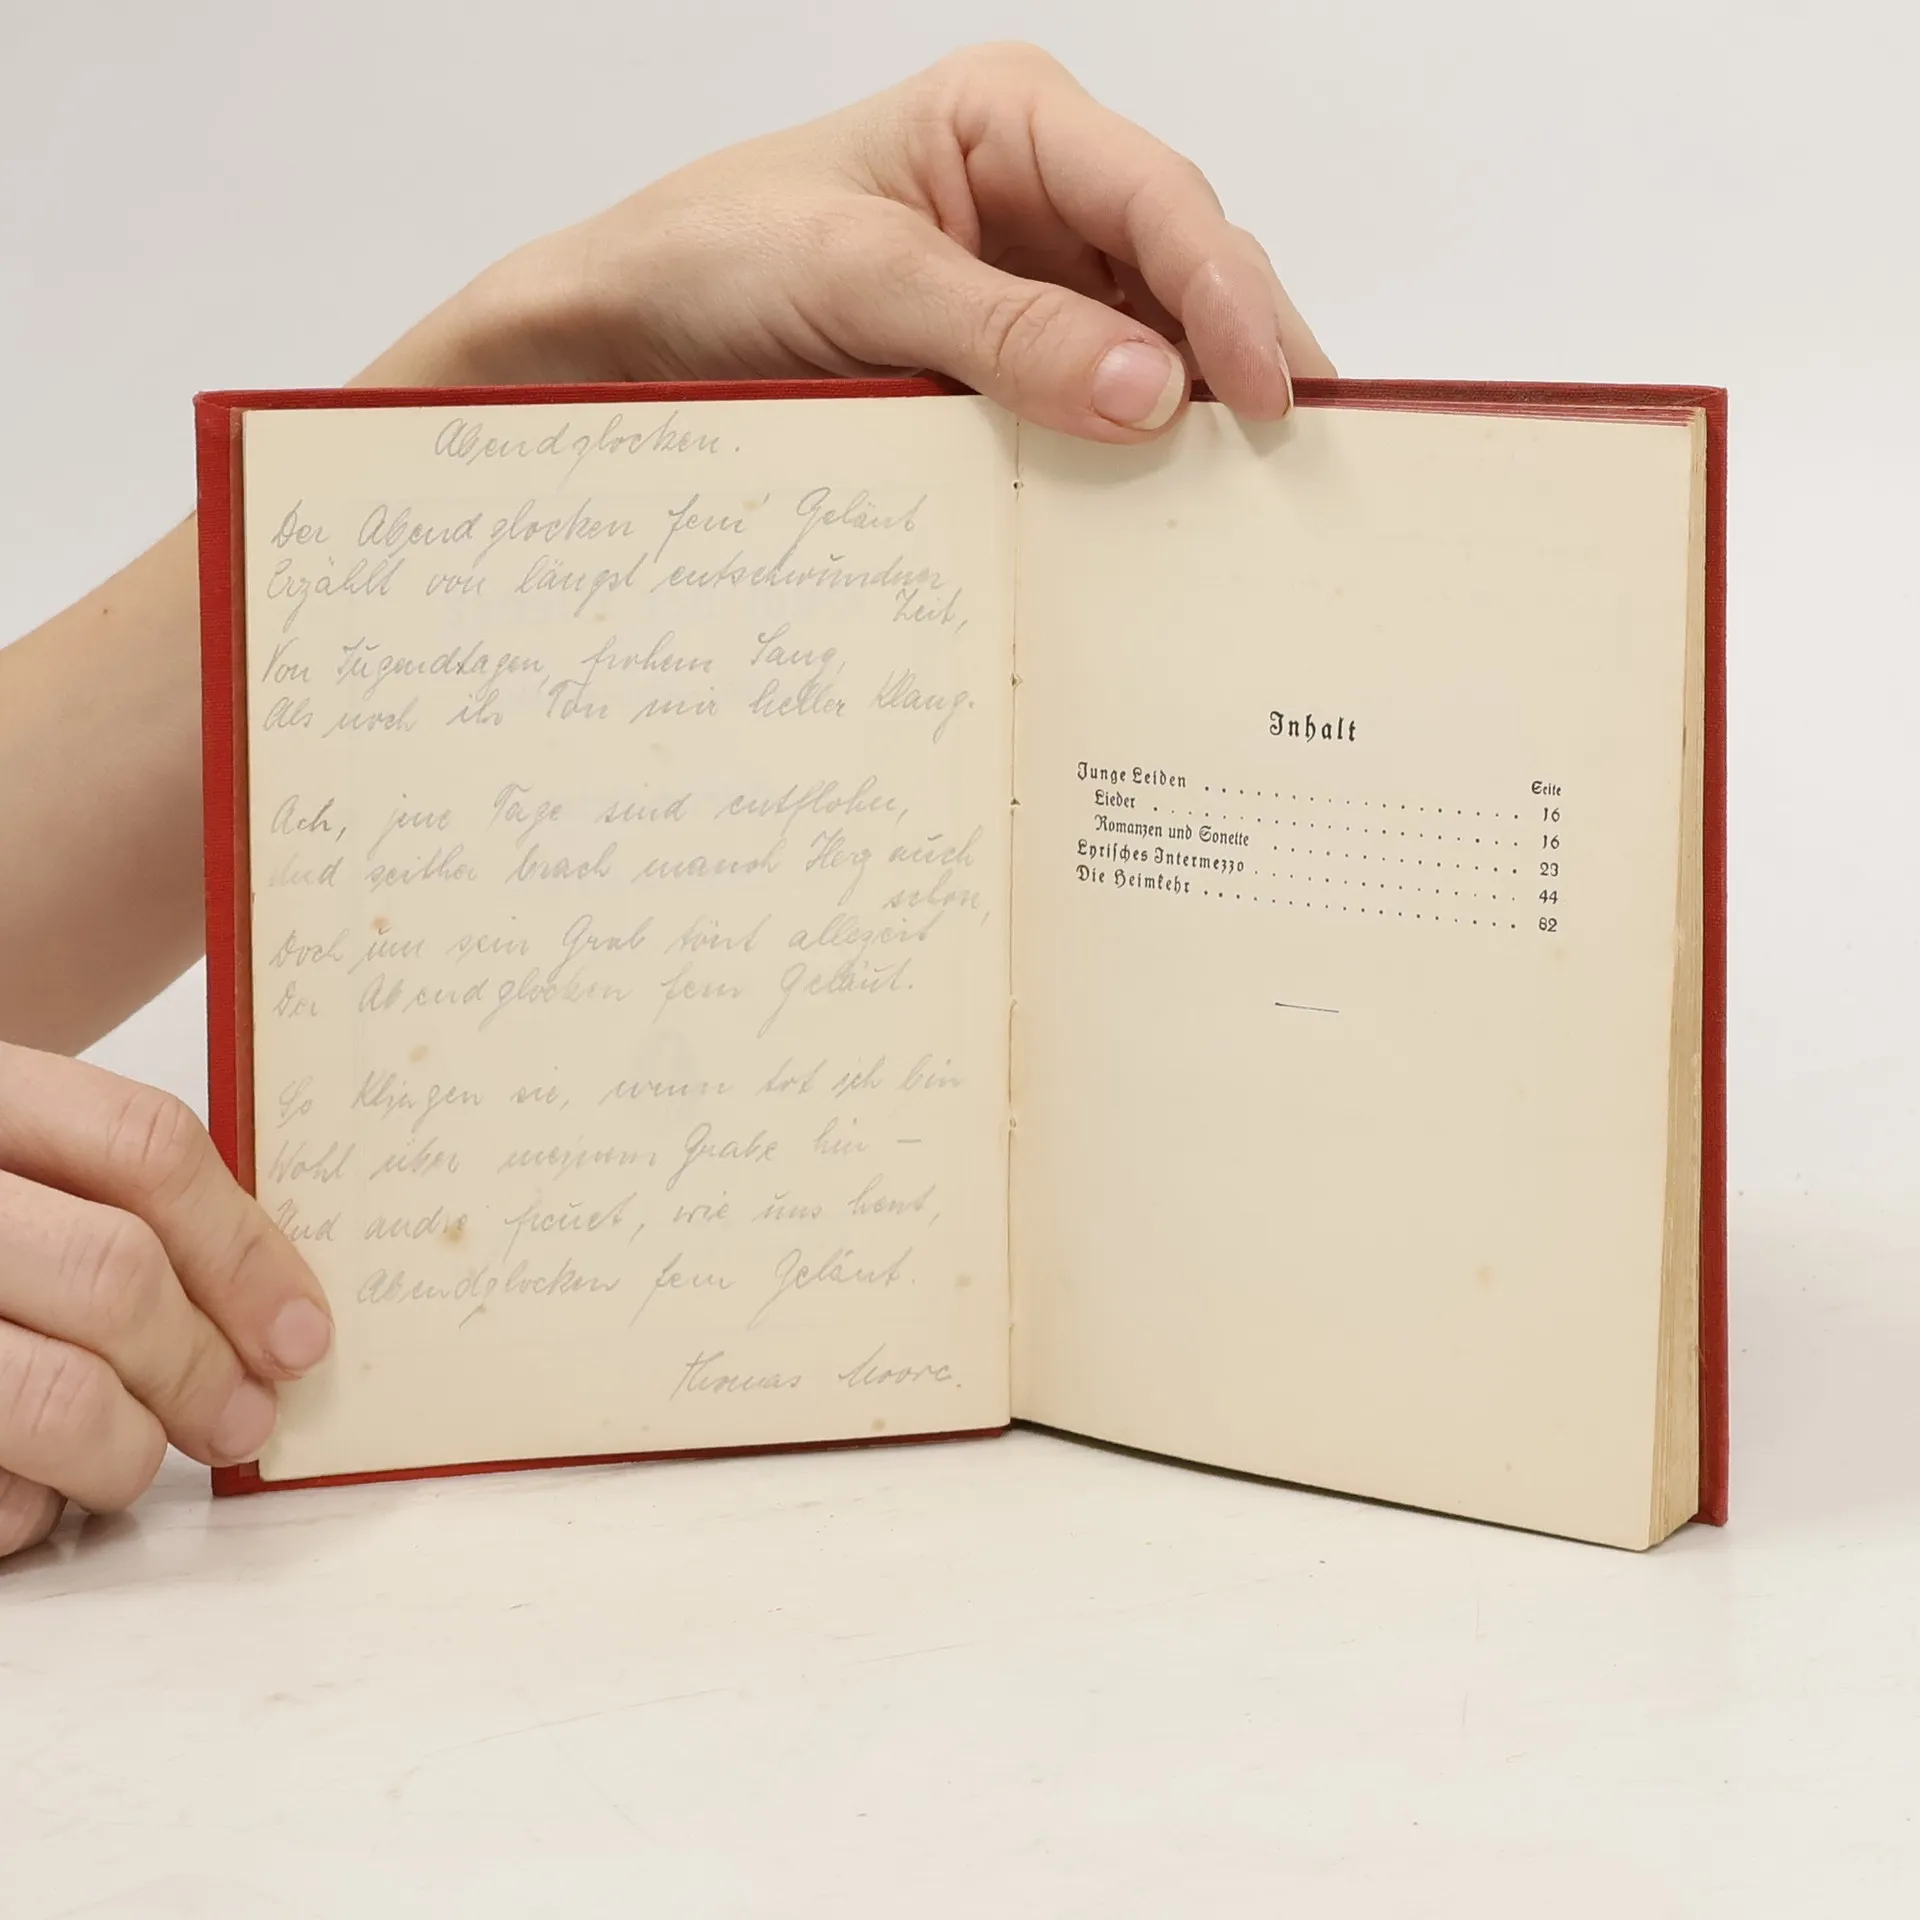 Abendglocken.
Der Abendglocken fern' Geläut
Erzählt von längst entschwundner
Zeit,
Von Jugendtagen, frohem Sang,
Als noch ihr Ton mir heller klang.
Ach, jene Tage sind entflohn,
Und seither brach manch Herz auch
schon,
Doch um sein Grab tönt allezeit
Der Abendglocken fern Geläut.
So klingen sie, wenn tot ich bin
Wohl über meinem Grabe hin –
Und andre freuet, wie uns heut,
Abendglocken fern Geläut.
Thomas Moore.
Inhalt
Seite
Junge Leiden . . . . . . . . . . . . . . . . 16
Lieder . . . . . . . . . . . . . . . . . . 16
Romanzen und Sonette . . . . . . . . . . . . 23
Lyrisches Intermezzo . . . . . . . . . . . . . 44
Die Heimkehr . . . . . . . . . . . . . . . . 82